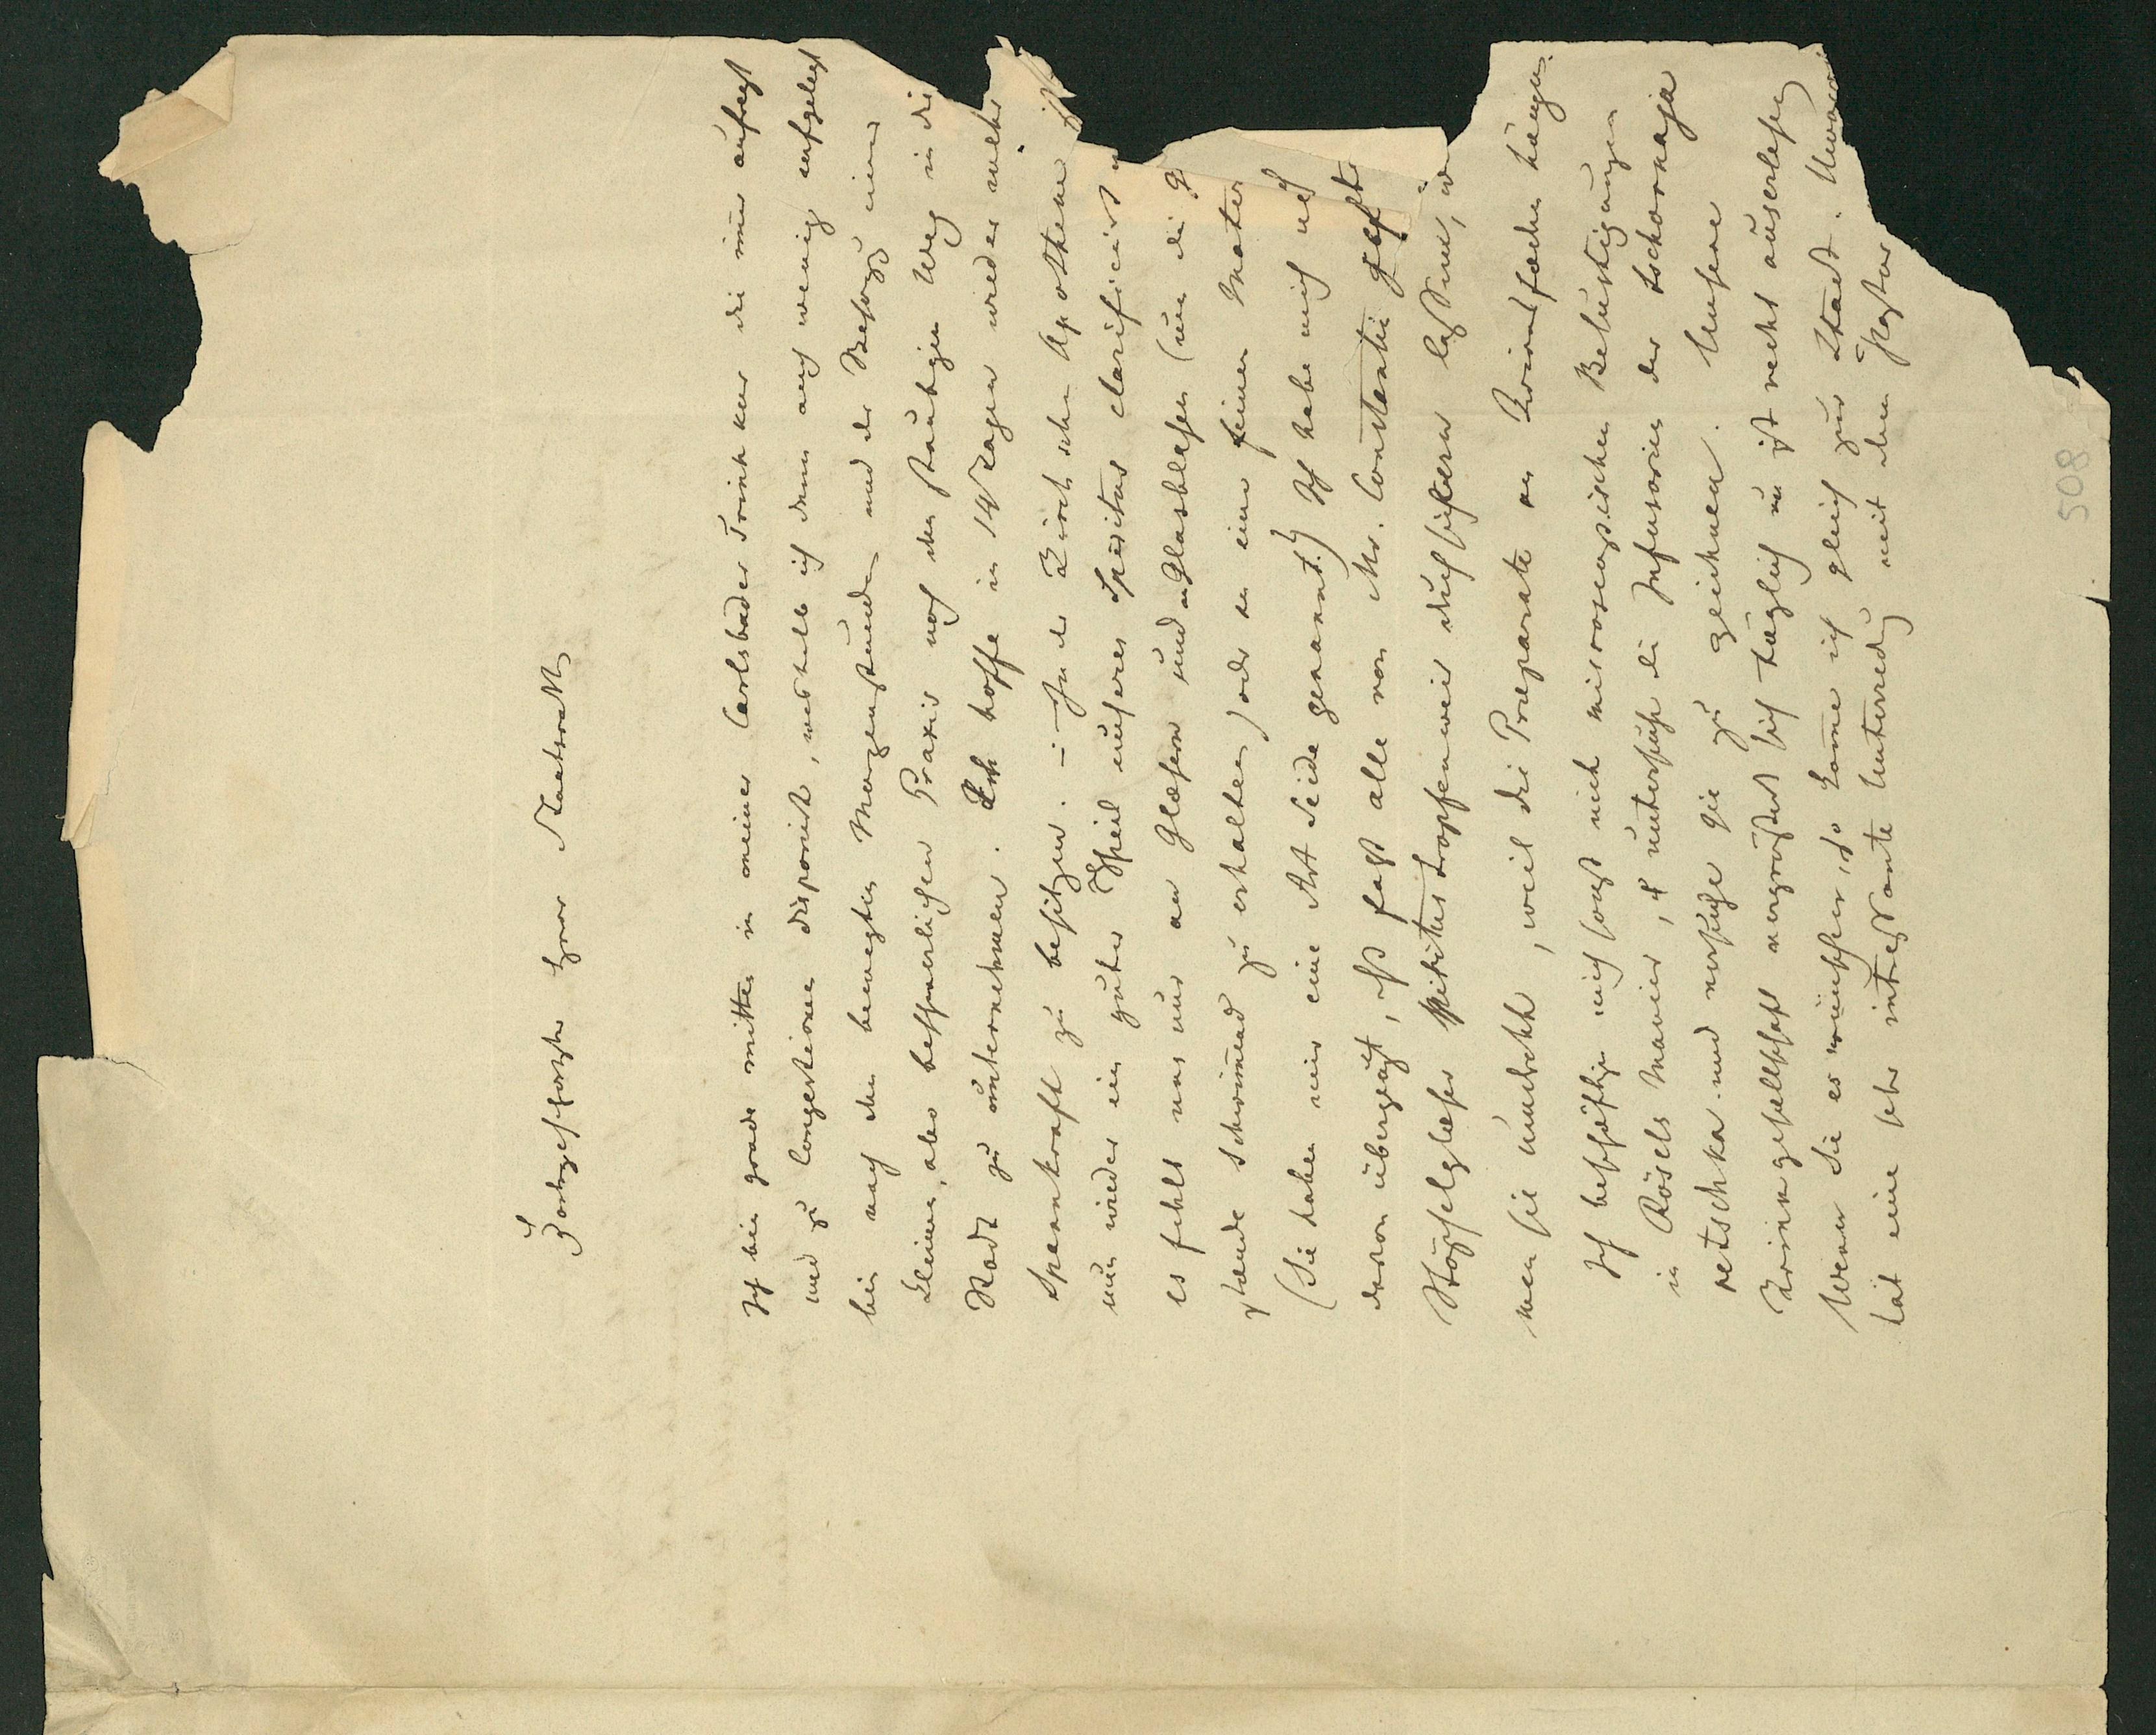 Hochgeschäzter Herr Staatsrath
Ich bin grade mitten in meiner Carlsbader Trinkkur die immer aufregt
und zu Congestionen disponirt, weshalb ich denn auch wenig aufgelegt
bin nach den bewegten Morgenstunden und der Besorgung einer
kleinen, aber beschwerlichen Praxis noch den staubigen Weg in die
Stadt zu unternehmen. Ich hoffe in 14 Tagen wieder mehr
Spannkraft zu besitzen. – In der Apotheke ist
nun wieder ein guter Theil unseres Spiritus clarificirt
es fehlt uns nur an Gläsern und an Glasblasen (um die
stände schwimmend zu erhalten) oder an einer feinen Mater
(Sie haben mir eine Art Seide genannt.) Ich habe mich
davon überzeugt, dass fast alle von Mr. Constantin
Stöpselgläser Spiritus tropfenweis durchsickern lassen,
man sie umdreht, weil die Präparate an Zwirnsfäden hängen.
Ich beschäftige mich sonst mit microscopischen Belustigungen
in Rösels Manier, ich untersuche die Infusorien der tschornaja
retschka und versuche sie zu zeichnen. Unsere
Trinkgesellschaft vergrößert sich täglich u ist recht auserlesen
Wenn Sie es wünschen, so komme ich gleich zur Stadt.
hat eine sehr interessante Unterredung mit dem Pastor
508